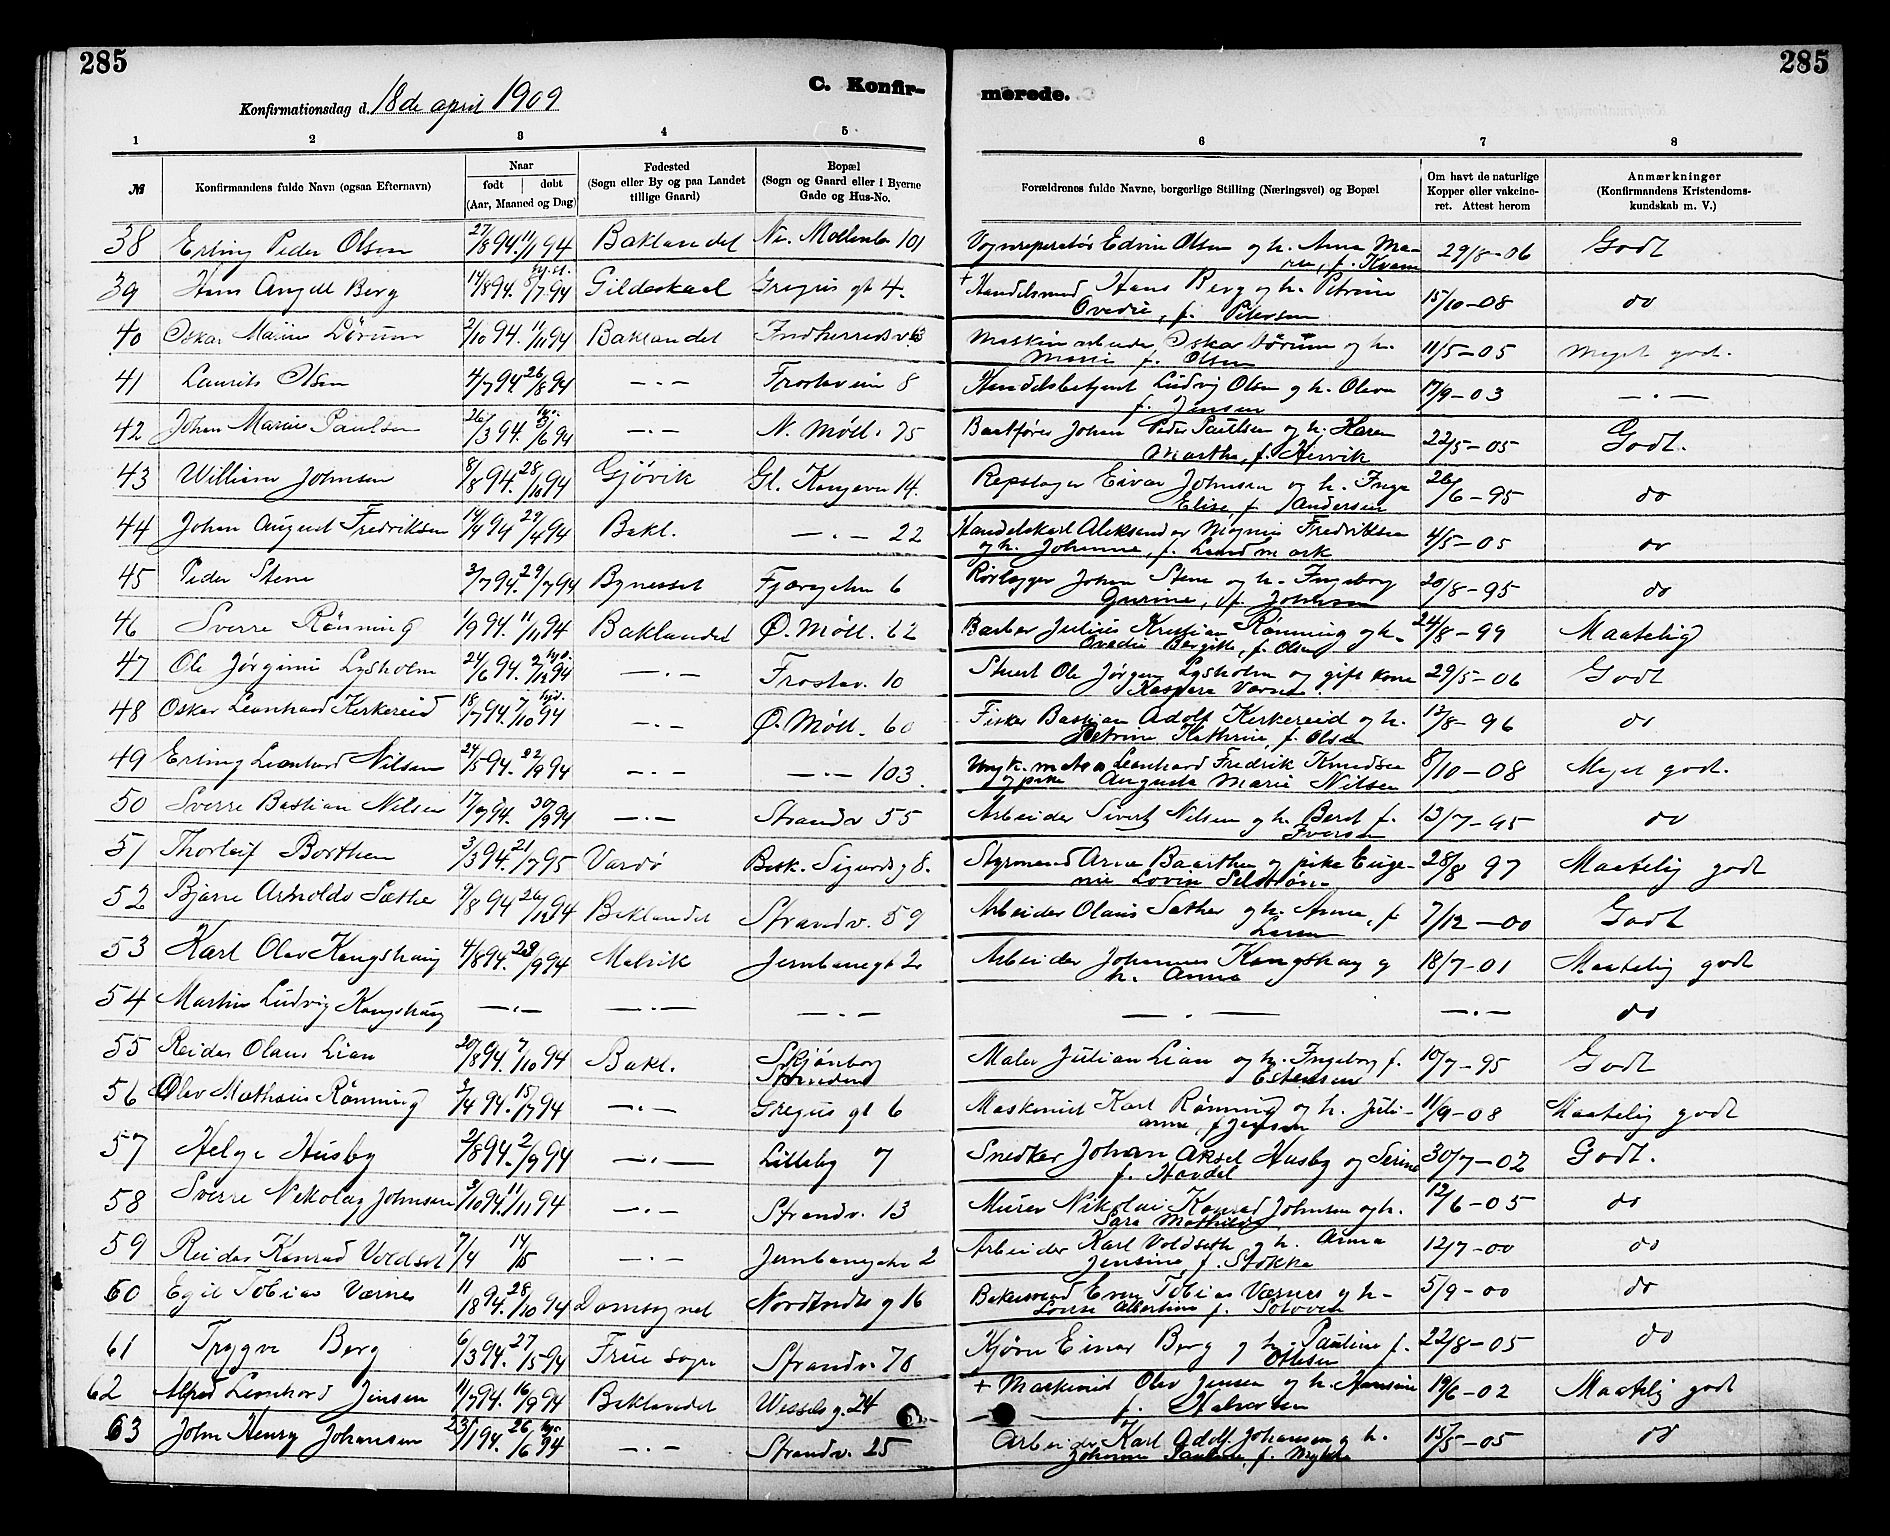 285
285
Konfirmationsdag d. 18de april 1909
C. Konfir- merede.
1 2 3 4 5 6 7 8
№ Konfirmandens fulde Navn (ogsaa Efternavn) Naar født døbt (Aar, Maaned og Dag) Fødested (Sogn eller By og paa Landet tillige Gaard) Bopæl (Sogn og Gaard eller i Byerne Gade og Hus-No. Forældrenes fulde Navne, borgerlige Stilling (Næringsvei) og Bopæl Om havt de naturlige Kopper eller vakcineret. Attest herom Anmærkninger (Konfirmandens Kristendomskundskab m. V.)
38 Erling Peder Olsen 27/8 94. 11/11 94 Baklandet Ne. Møllenb. 101 Vognreperatør Edvin Olsen og h. Anna Ma- 29/8-06 Godt
rie, f. Kvam
39 Hans Angell Berg 14/8 94. 8/7 94 Gildeskaal Gregus gt 4. + Handelsmand Hans Berg og h. Petrine 15/10-08 do
Ovedie, f. Petersen
40 Oskar Marius Lørum 2/10 94. 11/11 94 Baklandet Indherredsv 63 Maskinarbeider Oskar Lørum og h. 11/5-05 Meget godt.
Marie f. Olsen
41 Laurits Olsen 4/7 94 26/8 94 —.— Frostaveien 8 Handelsbetjent Ludvig Olsen og h. Olava 17/9-03 —.—
f. Jensen
42 Johan Marius Paulsen 26/3 94. 3/6 94 —.— N. Møll. 75 Baatfører Johan Peder Paulsen og h. Haren 22/5-05 Godt.
Martha, f. Hervik
43 William Johnsen 8/8 94. 28/10 94 Gjøvik Gl. Kongevei 14. Repslager Eivar Johnsen og h. Inga 26/6-95 do
Elise, f. Andersen
44 Johan August Fredriksen 14/4 94 29/4 94 Bakl. —.— 22 Handelskarl Aleksander Magnus Fredriksen 4/5-05 do
og h. Johanne, f. Landmark
45 Peder Stene 3/7 94. 29/7 94 Bynesset Fjæregaten 6 Rørlægger Johan Stene og h. Ingeborg 20/8-95 do
Gurine, f. Johnsen
46 Sverre Rønning 1/9 94. 11/11 94 Baklandet Ø. Møll. 62 Barber Julius Kristian Rønning og h- 24/8-99 Maatelig
Ovedie Bergitte, f. Olsen
47 Ole Jørginus Lysholm 24/6 94. 2/12 94 —.— Frostav. 10 Stuert Ole Jørgen Lysholm og gift kone 29/5-06 Godt
Kaspara Varnes
48 Oskar Leonhard Kirkereid 18/7 94. 7/10 94 —.— Ø. Møll. 60 Fisker Bastian Adolf Kerkereid og h. 12/8-96 do
Petrine Kathrine, f. Olsen
49 Erling Leonhard Nilsen 24/5 94. 22/9 94 —.— —.— 103. Ungk. matros Leonhard Fredrik Knudsen 8/10-08 Meget godt.
og pike Augusta Marie Nilsen
50 Sverre Bastian Nilsen 17/7 94. 30/9 94 —.— Strandv 55 Arbeider Sivert Nilsen og h. Berit f. 13/7-95 do
Iversen
51 Thorleif Borthen 3/3 94. 21/7 95 Vardø Bisk. Sigurds g 8. Styrmand Arne Baarthen og pike Euge- 28/8 97 Maatelig godt
nie Lovin Selstrøm
52 Bjarne Arnolds Sæther 9/8 94 26/12 94 Baklandet Strandv. 59 Arbeider Olaus Sæther og h. Anna, f. 7/12-00 Godt
Larsen
53 Karl Olav Kongshaug 4/8 94. 29/9 94 Malvik Jernbanegt 2 Arbeider Johannes Kongshaug og 18/7-01 Maatelig godt
h. Anna
54 Martin Ludvig Kongshaug —.— —.— —.— — . — —.— do
55 Reidar Olaus Lian 20/8 94. 7/10 94 Bakl. Skjønborg Maler Julian Lian og h. Ingeborg f. 10/7-95 Godt
Strinden Estensen
56 Olav Mathæus Rønning 2/4 94. 15/7 94 —.— Gregus gt 6 Maskinist Karl Rønning og h. Juli- 11/9-08 Maatelig godt
anne, f. Jensen
57 Helge Husby 2/8 94. 2/9 94 —.— Lilleby 7 Snedker Johan Aksel Husby og Serine 30/7-02 Godt.
f. Hovdel
58 Sverre Nikolay Johnsen 3/10 94. 11/11 94 —.— Strandv. 13 Murer Nikolai Konrad Johnsen og h. 12/6-05 do
Sara Mathilde
59 Reidar Konrad Voldset 7/4 14/5 —.— Jernbanegaten 2 Arbeider Karl Voldseth og h. Anna 12/7-00 do
Jensine, f. Stokke
60 Egil Tobias Værnes 11/8 94. 28/10 94 Domsognet Nordtvedts g 16 Bakersvend Even Tobias Værnes og h- 5/9-00 do
Lovise Albertine f. Solovei
61 Trygve Berg 6/3 94. 27/5 94 Frue sogn Strandv. 70 Kjører Einar Berg og h. Pauline f. 22/8-05 do
Ottesen
62 Alfred Leonhard Jensen 11/7 94. 16/9 94 Baklandet Wessels g. 24 + Maskinist Olav Jensen og h. Hansine 19/6-02 Maatelig godt
f. Halvorsen
63 John Henry Johansen 23/1 94. 26/6 94 —.— Strandv. 25 Arbeider Karl Adolf Johansen og h. 15/5-05 do
Johanna Pauline, f. Myhre